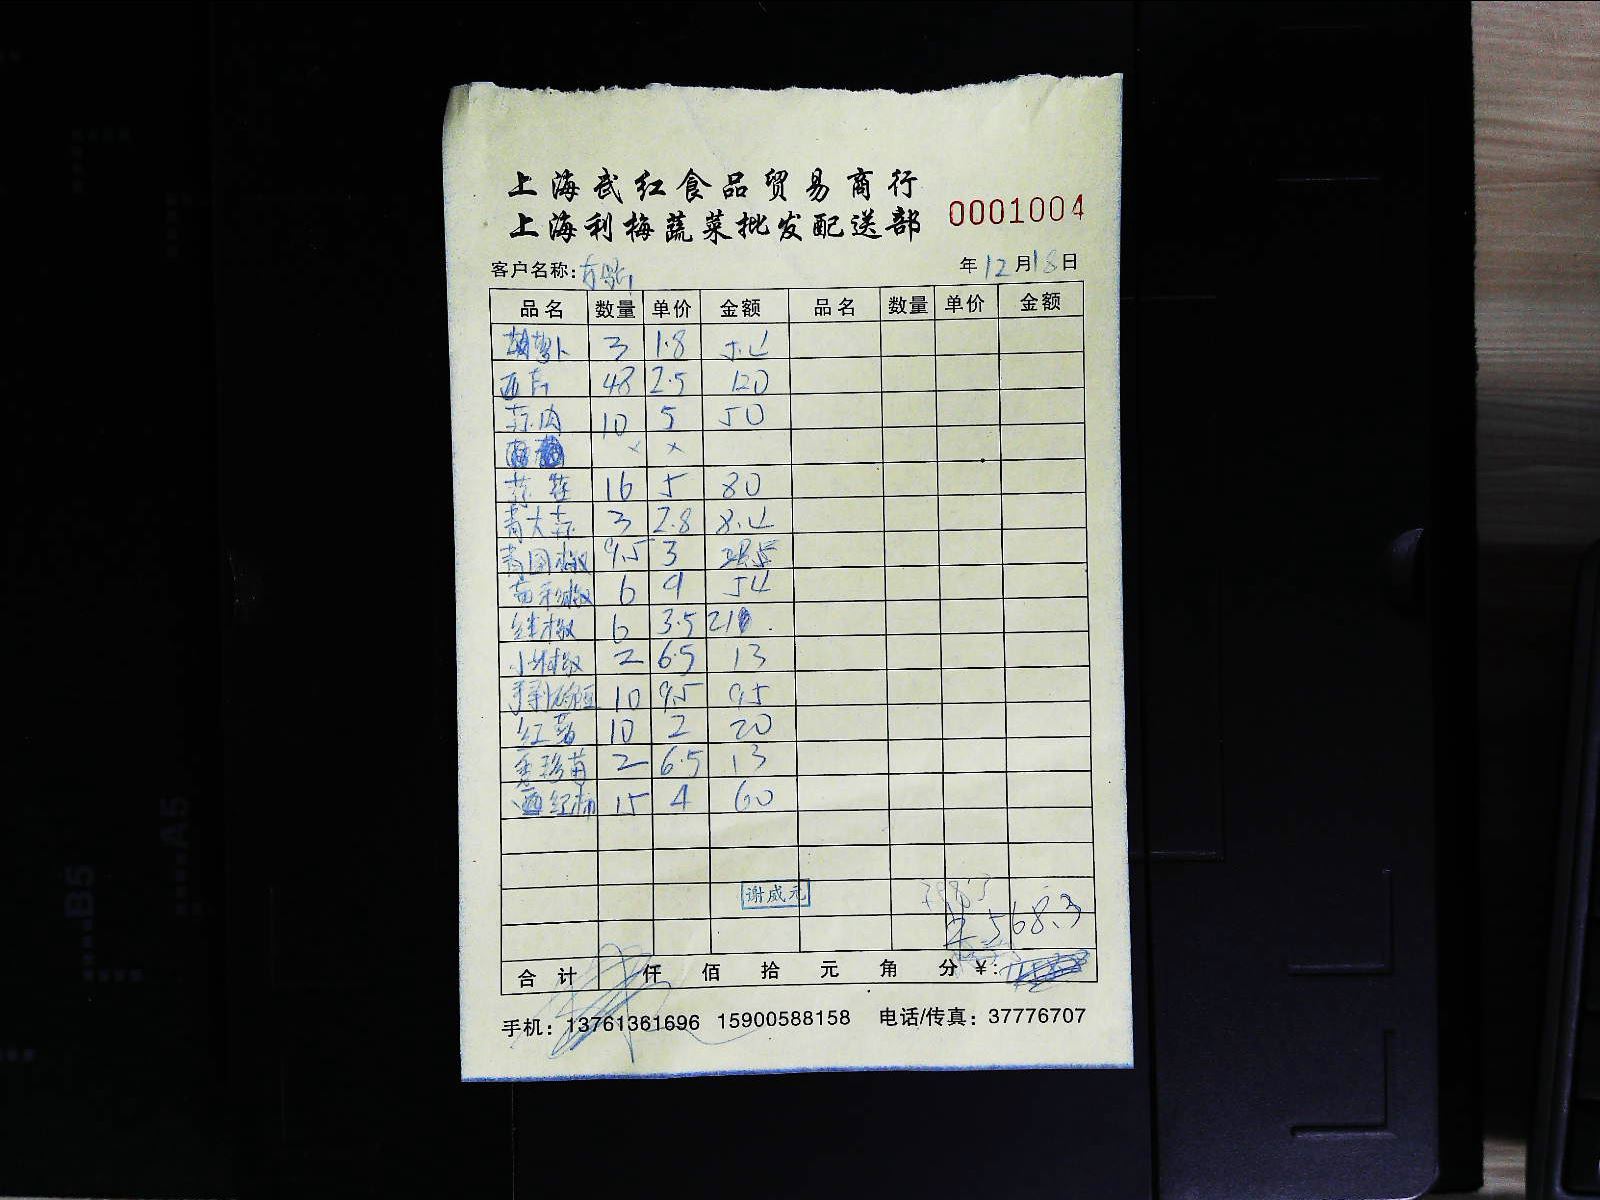 上海武红食品贸易商行
上海利梅蔬菜批发配送部
0001004
客户名称:
年12月18日
品名 数量 单价 金额 品名 数量 单价 金额
胡萝卜 3 1.8 5.4
西芹 48 2.5 120
蒜肉 10 5 50
× ×
16 5 80
青大蒜 3 2.8 8.4
青园椒 9.5 3 28.5
6 9 54
红尖椒 6 3.5 21
小米椒 2 6.5 13
10 9.5 95
红薯 10 2 20
2 6.5 13
西红柿 15 4 60
谢威元
568.3
合计 仟 佰 拾 元 角 分 ¥:
手机: 13761361696 15900588158 电话/传真: 37776707
B5
A5